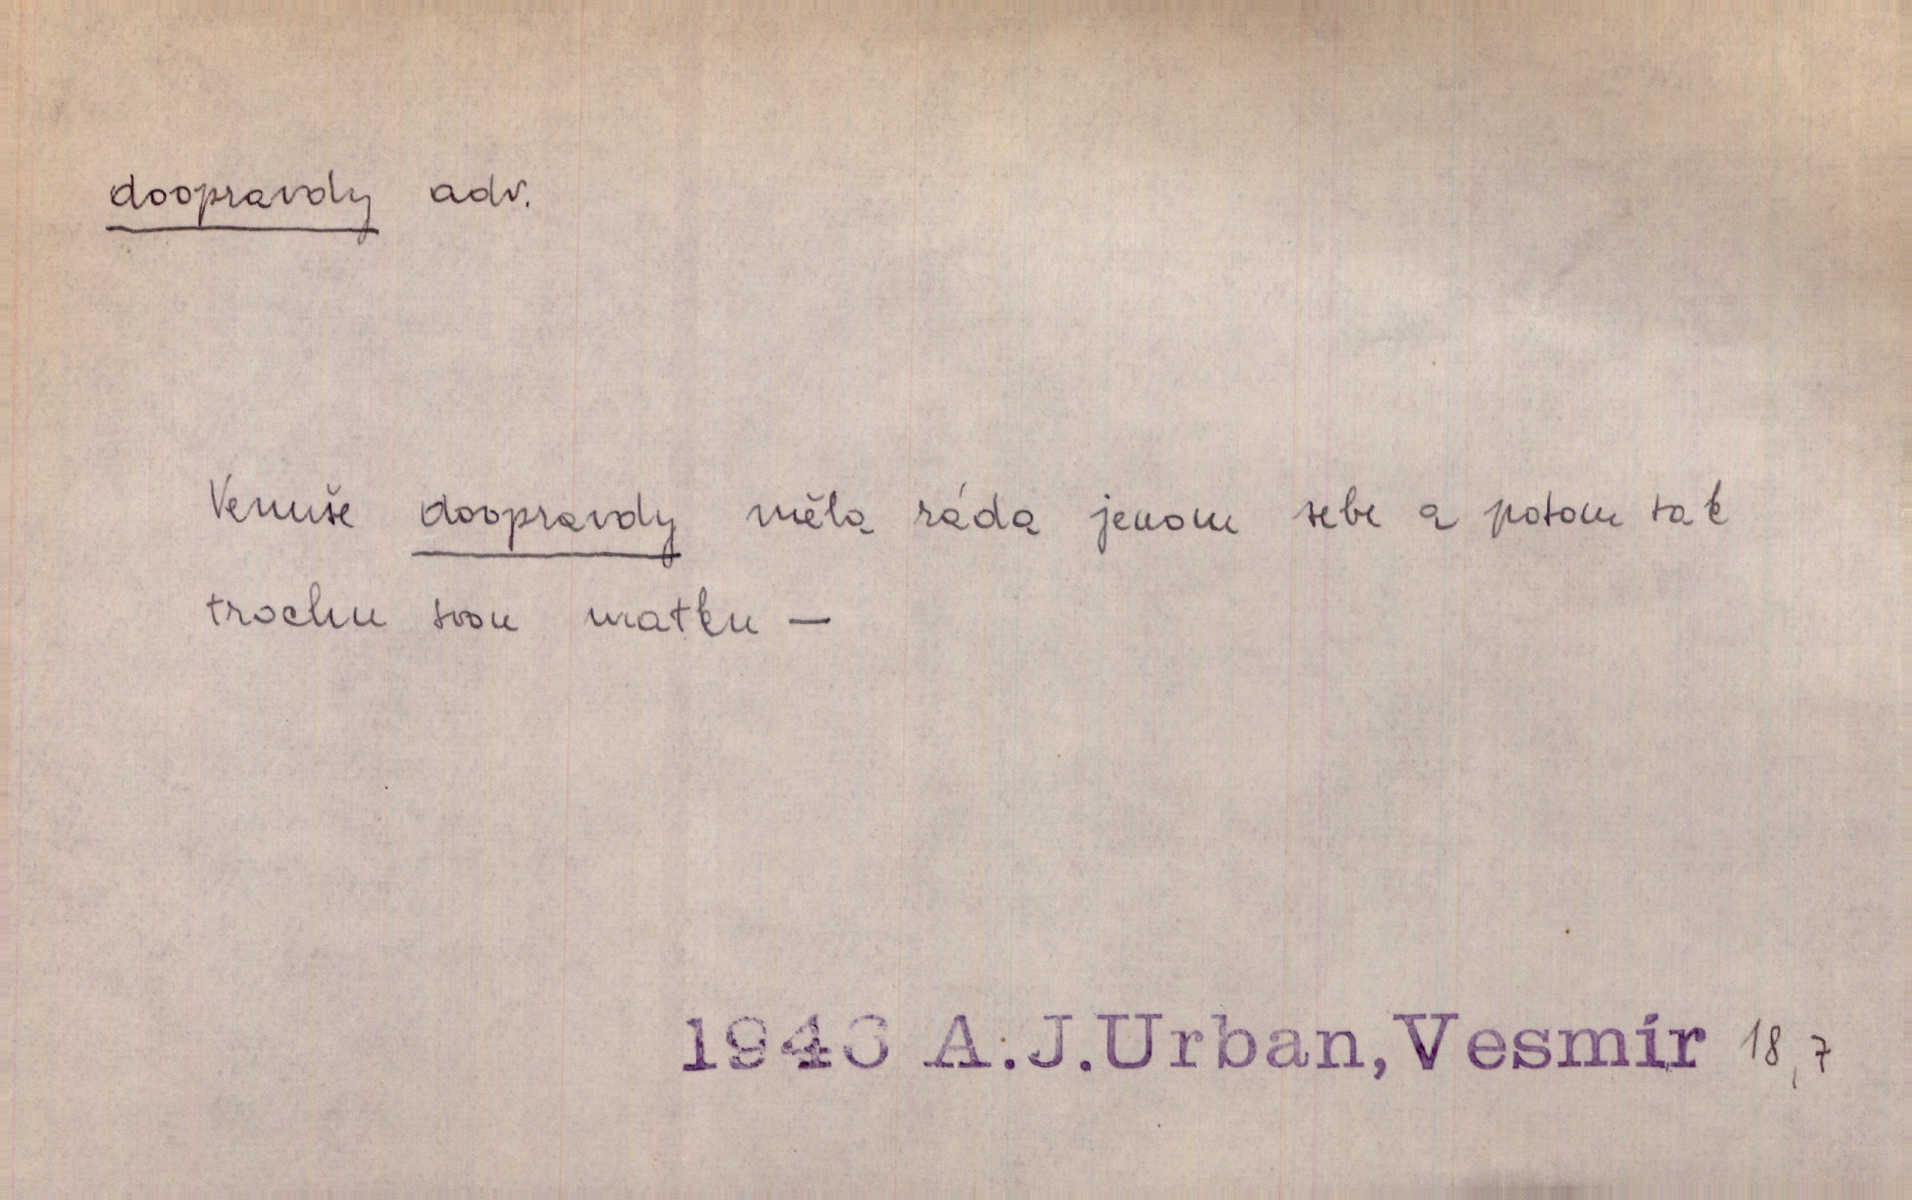 doopravdy adv.
Venuše doopravdy měla ráda jenom sebe a potom tak
trochu svou matku —
1946 A.J.Urban,Vesmír 18,7